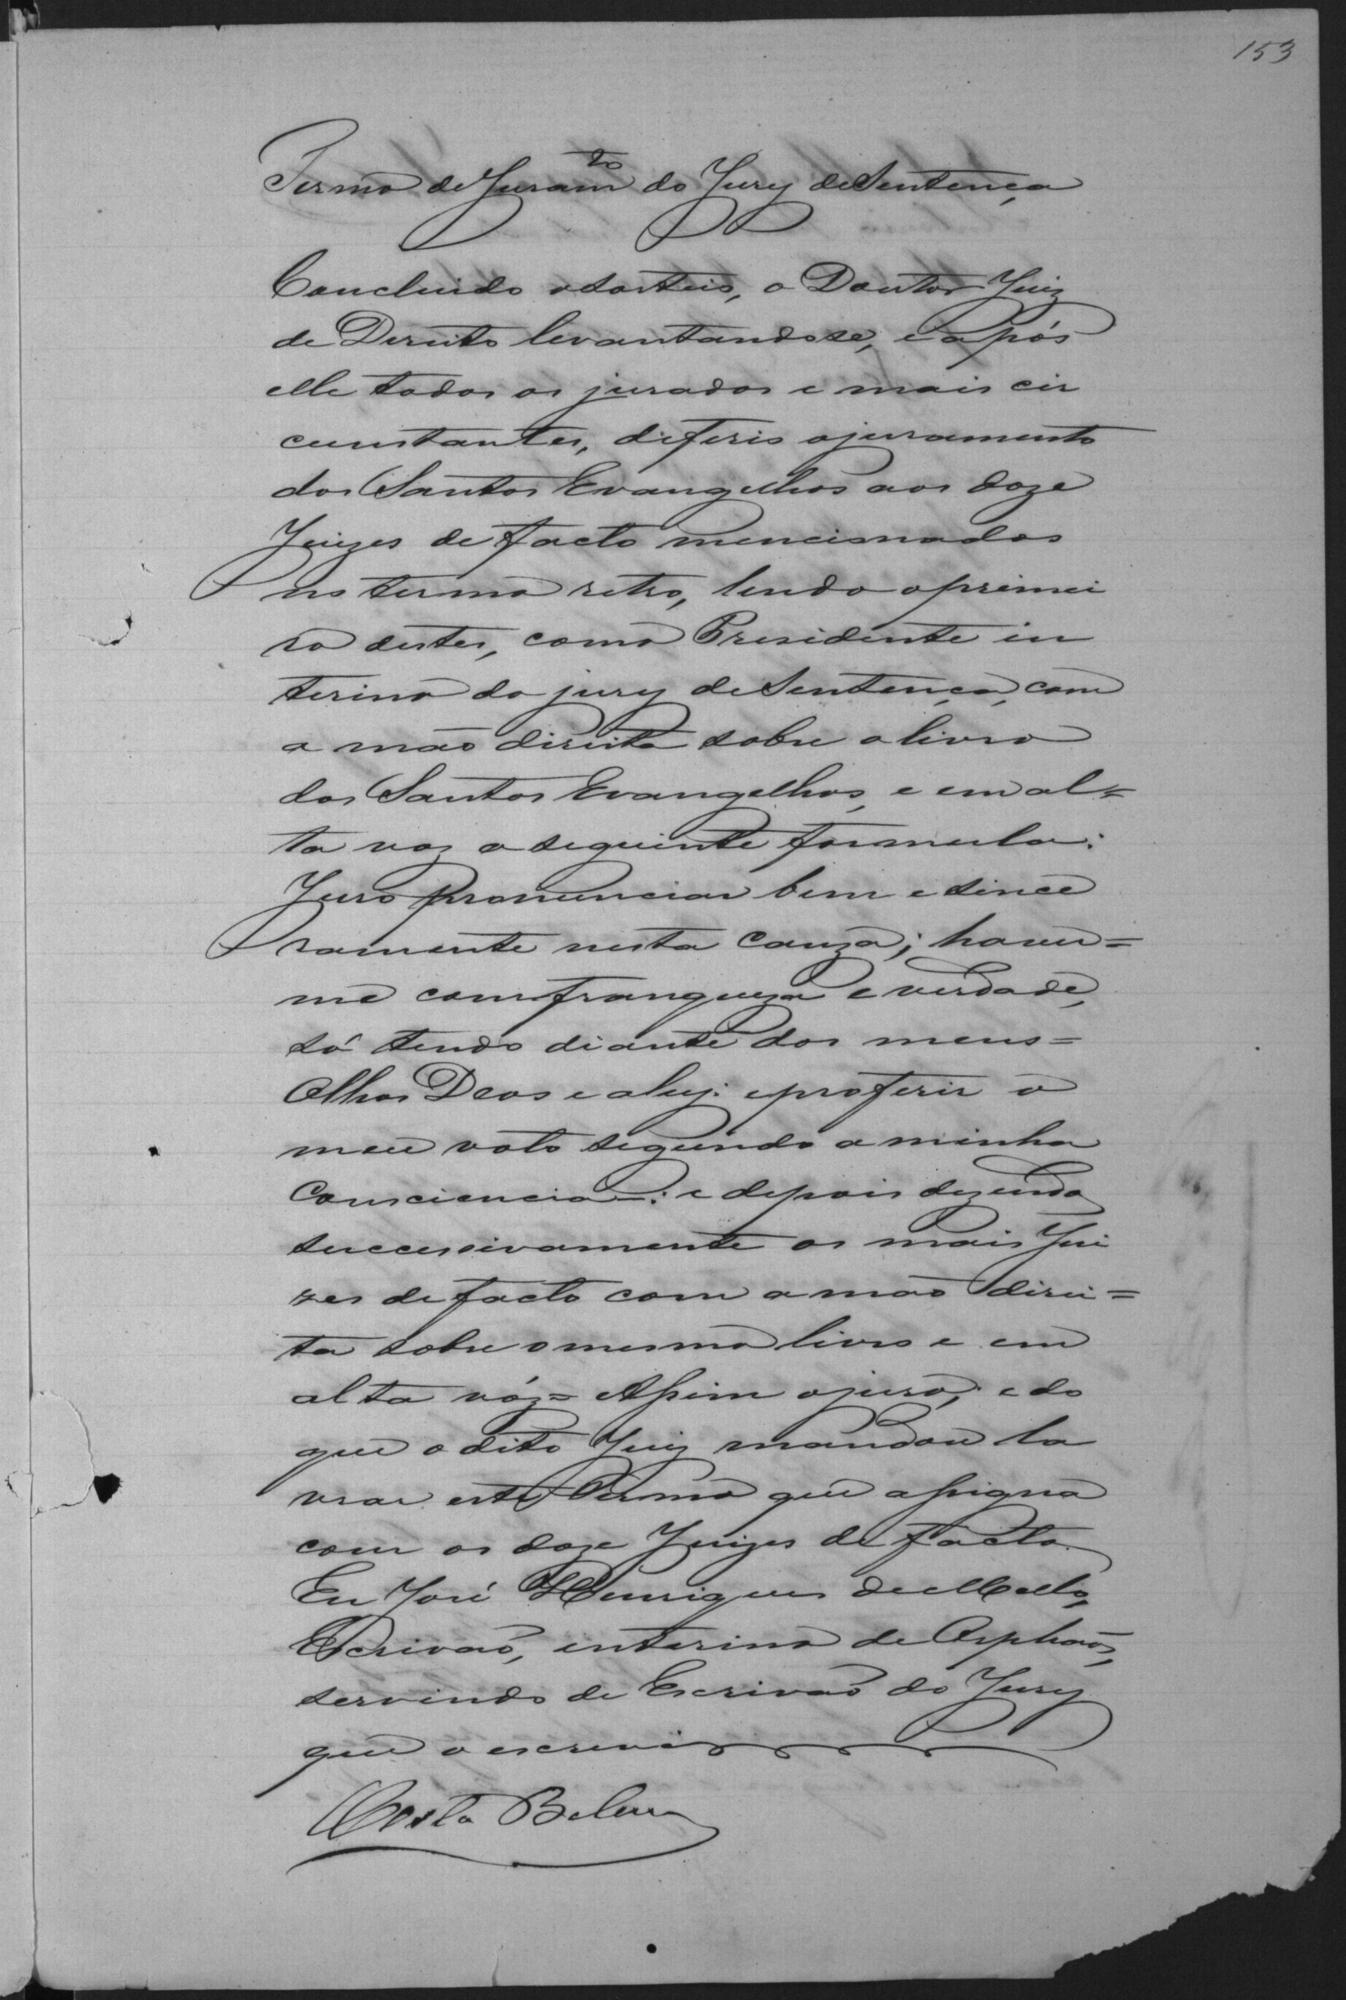 153
Termo de Juramto do Jury de Sentença
Concluido o sorteio, o Doutor Juiz
de Direito levantandose, e após
elle todos os jurados e mais cir
cunstantes, diferio o juramento
dos Santos Evangelhos aos doze
Juizes de facto mencionados
no termo retro, lendo o primei
ro destes, como Presidente in
terino do jury de Sentença, com
a mão direita sobre o livro
dos Santos Evangelhos, e em al=
ta voz a seguinte formula:
Juro pronunciar bem e since
ramente nesta cauza; haver=
me com franqueza e verdade,
só tendo diante dos meus=
Olhos Deos e a ley: e proferir o
meu voto segundo a minha
Consciencia: e depois dezendo
successivamente os mais Jui
zes de facto com a mão direi=
ta sobre o mesmo livro e em
alta vóz= Assim o juro; e do
que o dito Juiz mandou la
vrar este Termo que assigna
com os doze Juizes de facto.
Eu José Henriques de Mello,
Escrivão, enterino de Orphãos,
servindo de Escrivão do Jury
que o escrevi
Costa Belem